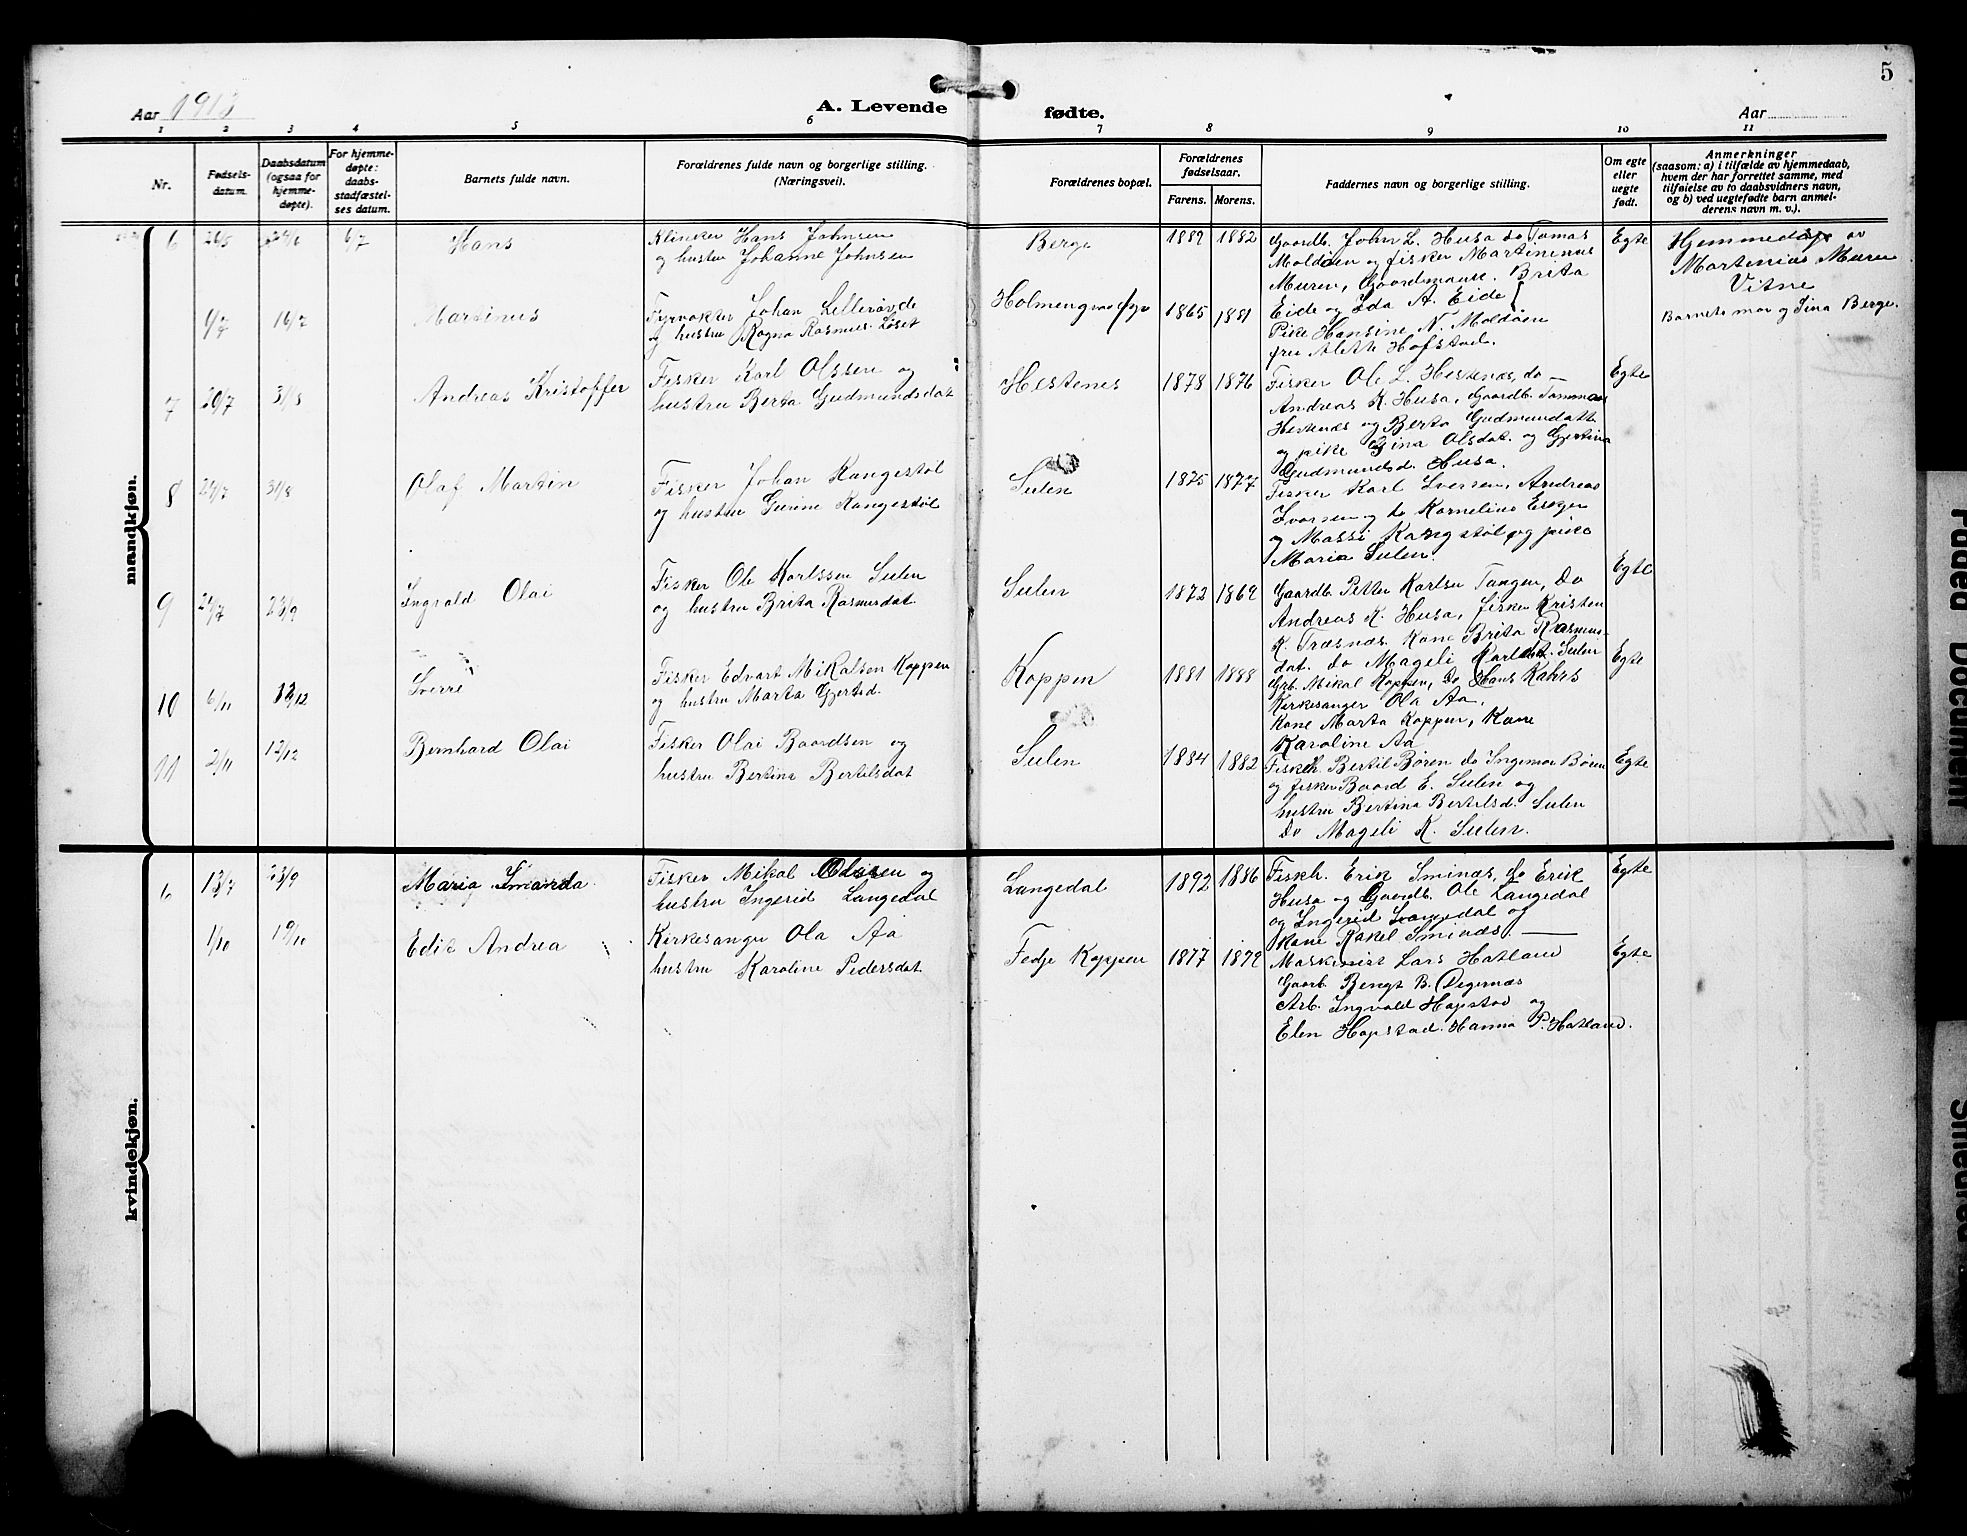 5
Aar 1913
A. Levende fødte.
Aar
1 2 3 4 5 6 7 8 9 10 11
Nr.
Fødsels-
datum.
Daabsdatum
(ogsaa for
hjemme-
døpte).
For hjemme-
døpte:
daabs-
stadfæstel-
ses datum.
Barnets fulde navn.
Forældrenes fulde navn og borgerlige stilling.
(Næringsvei).
Forældrenes bopæl.
Forældrenes
fødselsaar.
Farens. Morens.
Faddernes navn og borgerlige stilling.
Om egte
eller
uegte
født.
Anmerkninger
(saasom: a) i tilfælde av hjemmedaab,
hvem der har forrettet samme, med
tilføielse av to daabsvidners navn,
og b) ved uegtefødte barn anmel-
derens navn m. v.).
mandkjøn.
6 26/5 6/7 Hans
Klinker Hans Johnsen
og hustru Johanne Johnsen
Berge 1889 1882
Gaardb. John L. Husa do Tomas
Moldøen og fisker Martininus
Muren, Gaardmansk. Brita
Eide og Ida A. Eide
Egte
Hjemmedøp av
Martinius Muren
Vitne
Barnets mor og Sina Berge.
16/7 Martinus
Fyrvokter Johan Lillerøvde
og hustru Ragna Rasmus. Løset
Holmengraa fyr 1865 1881
Pike Hansine N. Moldøen
fru Aleth Hofstad.
7 20/7 31/8 Andreas Kristoffer
Fisker Karl Olssen og
hustru Berta Gudmundsdat
Hestenes 1878 1876
Fisker Ole L. Hestenæs, do —
Andreas K. Husa, Gaardb. Tomman
Hestenæs og Berta Gudmundatt
og pike Gina Olsdat. og Gjertina
Gudmundsd. Husa.
Egte
8 24/7 31/8 Olaf Martin
Fisker Johan Kangestøl
og hustru Gurine Kangestøl
Sulen 1875 1877
Fisker Karl Iversen, Andreas
Ivarsen og do Kornelius
og Massi Kangstøl og pike
Maria Sulen.
9 24/7 28/9 Ingvald Olai
Fisker Ole Karlssen Sulen
og hustru Brita Rasmusdat.
Sulen 1872 1869
Gaardb. Petter Karlsen Tangen, do
Andreas K. Husa, fisker Kristen
K. Træsnæs. Kone Brita Rasmus-
dat. do Mageli Karlsdt. Sulen
Egte
10 6/11 12/12 Sverre
Fisker Edvart Mikalsen Koppen
og hustru Marta Gjertsd.
Koppen 1881 1888
Grb. Mikal Koppen, do Hans Kahrs
Kirkesanger Ola Aa,
Kone Marta Koppen, Kone
Karoline Aa
Egte
11 2/11 12/12 Bernhard Olai
Fisker Olai Baardsen og
hustru Bertina Bertilsdat
Sulen 1884 1882
Fiskeh. Bertil Børen do Ingemar Børen
og fisker Baard E. Sulen og
hustru Bertina Bertelsd. Sulen
do Mageli K. Sulen.
Egte
kvindekjøn.
6 13/7 28/9 Maria Smarda
Fisker Mikal Olssen og
hustru Ingerid Langedal
Langedal 1892 1886
Fiskh. Erik Sminæs, do Erik
Husa og Gaardb. Ole Langedal
og Ingerid Langedal og
Kone Rakel Sminæs. —
Egte
1/10 19/10 Edit Andrea
Kirkesanger Ola Aa
hustru Karoline Pedersdat
Fedje Koppen 1877 1879
Maskinist Lars Hatland
Gaarb. Bengt B. Degernæs
Arb. Ingvald Hopstad og
Elen Hopstad. Hanna P. Hatland.
Egte
Faded Document
Smeared